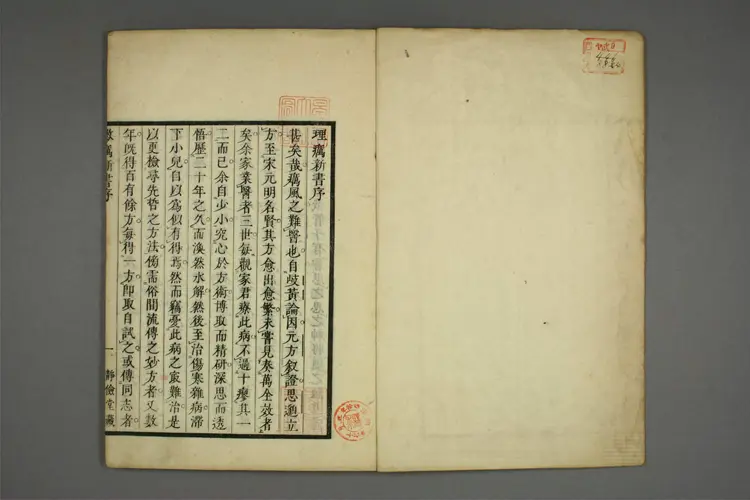 理癘新書序
甚矣哉癘風之難醫也自歧黃論因元方叙證思邈立
方至宋元明名賢其方愈出愈繁未嘗見奏萬全效者
矣余家業醫者三世每觀家君療此病不過十瘳其一
二而已余自少小究心於方術博取而精研深思而透
悟歷二十年之久而渙然氷解然後至治傷寒雜病滯
下小兒自以爲似有得焉然而竊憂此病之最難治是
以更檢尋先哲之方法傍需俗間流傳之妙方者又數
年既得百有餘方每得一方即取自試之或傳同志者
癘新書序
一
靜儉堂藏